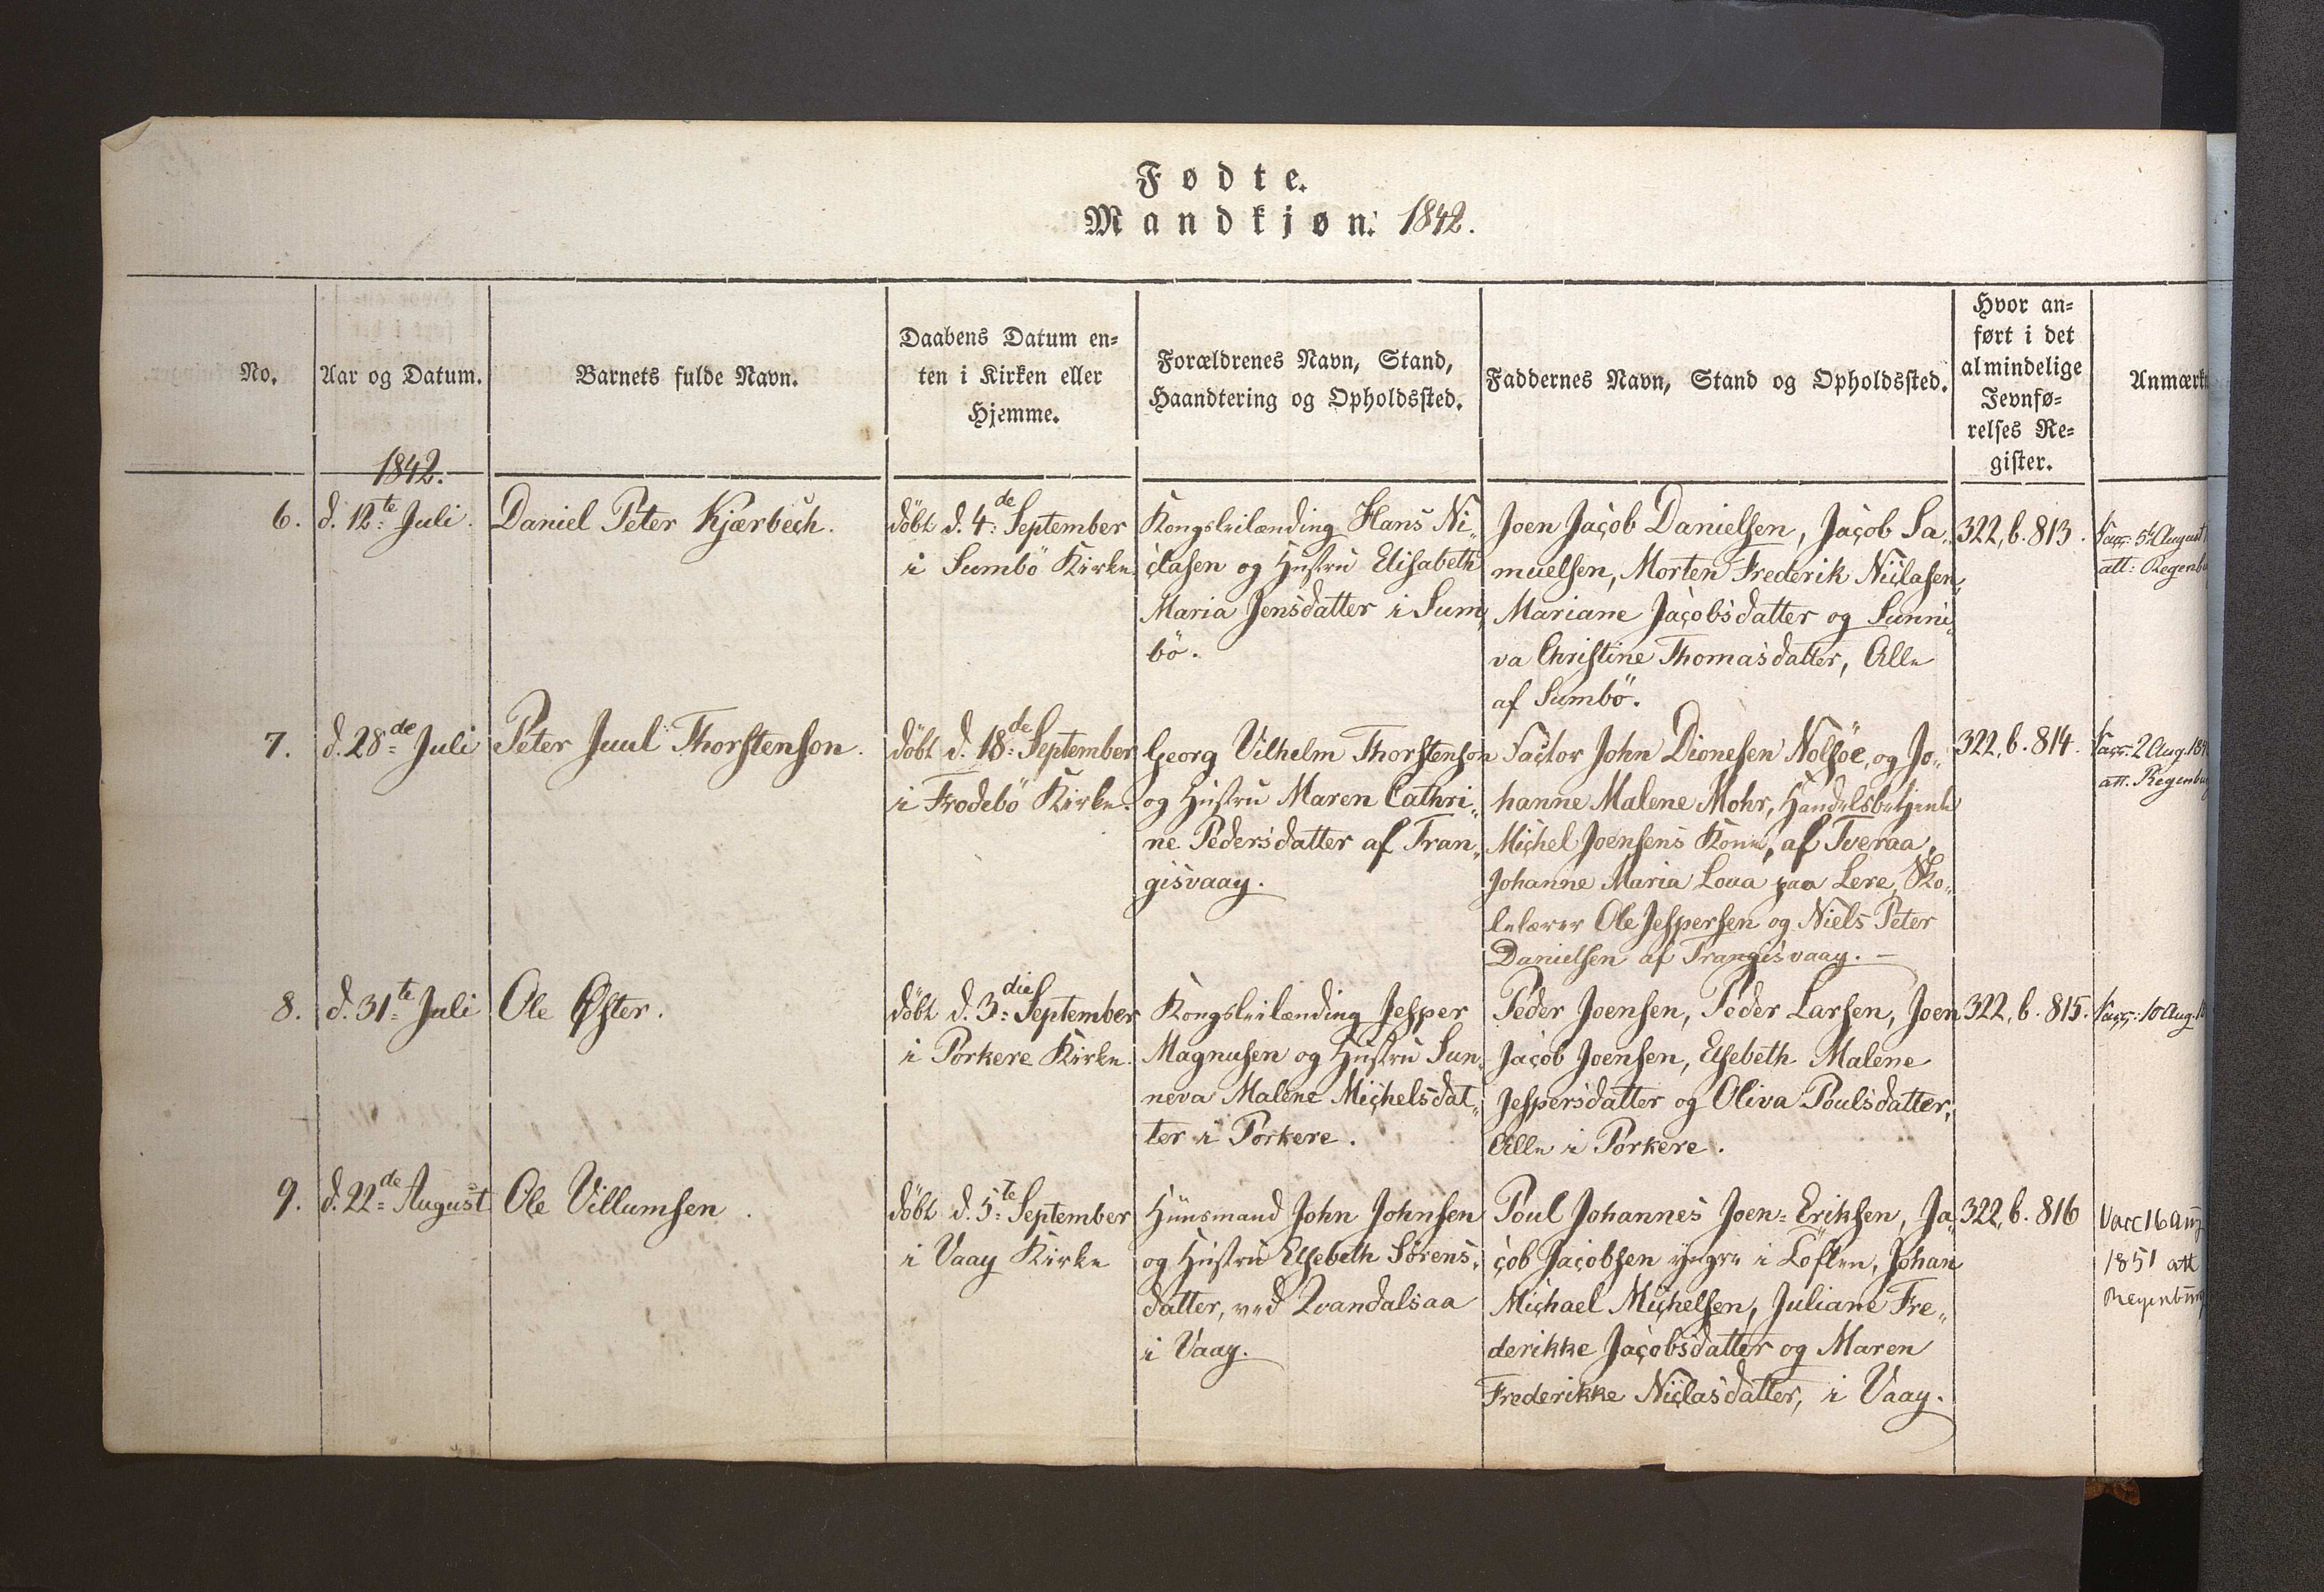 Fødte.
Mandkjøn: 1842.
No.
Aar og Datum.
Barnets fulde Navn.
Daabens Datum en=
ten i Kirken eller
Hjemme.
Forældrenes Navn, Stand,
Haandtering og Opholdssted.
Faddernes Navn, Stand og Opholdssted.
Hvor an=
ført i det
almindelige
Jevnfø=
relses Re=
gister.
Anmærkn
1842.
6.
d. 12te Juli.
Daniel Peter Kjærbech.
döbt d. 4de September
i Sumbö Kirke
Kongsleilænding Hans Ni„
clasen og Hustru Elisabeth
Maria Jensdatter i Sum„
bö.
Joen Jacob Danielsen, Jacob Sa„
muelsen, Morten Frederik Niclasen,
Mariane Jacobsdatter og Sunni„
va Christine Thomasdatter, Alle
af Sumbö.
322, b. 813.
Vacc: 5t August
att: Regenbu
7.
d. 28de Juli
Peter Juul Thorstenson.
döbt d. 18de September
i Frodebö Kirke.
Georg Vilhelm Thorstenson
og Hustru Maren Cathri„
ne Pedersdatter af Tran„
gisvaag.
Factor John Dionesen Nolsöe, og Jo„
hanne Malene Mohr, Handelsbetjent
Michel Joensens Kone, af Tveraa,
Johanne Maria Loua paa Lere, Sko„
lelærer Ole Jespersen og Niels Peter
Danielsen af Trangisvaag. —
322, b. 814.
Vacc: 2 Aug. 18
att. Regenbu
8.
d. 31te Juli
Ole Øster.
döbt d. 3die September
i Porkere Kirke.
Kongsleilænding Jesper
Magnusen og Hustru Sun„
neva Malene Michelsdat„
ter i Porkere.
Peder Joensen, Peder Larsen, Joen
Jacob Joensen, Elsebeth Malene
Jespersdatter og Oliva Poulsdatter,
Alle i Porkere.
322, b. 815.
Vacc: 10 Aug. 1
9.
d. 22de August
Ole Villumsen.
döbt d. 5te September
i Vaag Kirke
Huusmand John Johnsen
og Hustru Elsebeth Sörens„
datter, ved Qvandalsaa
i Vaag.
Poul Johannes Joen=Eriksen, Ja„
cob Jacobsen yngre i Löften, Johan
Michael Michelsen, Juliane Fre„
derikke Jacobsdatter og Maren
Frederikke Niclasdatter, i Vaag.
322, b. 816
Vacc 16 Aug
1851 att
Regenburg